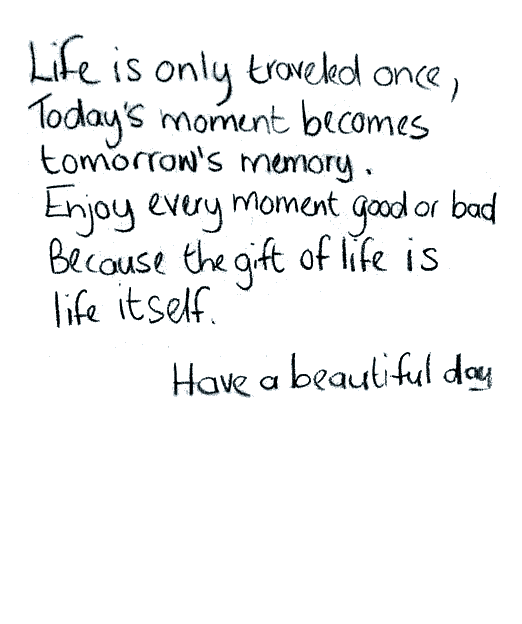 Life is only traveled once,
Today's moment becomes
tomorrow's memory.
Enjoy every moment good or bad
Because the gift of life is
life itself.
Have a beautiful day